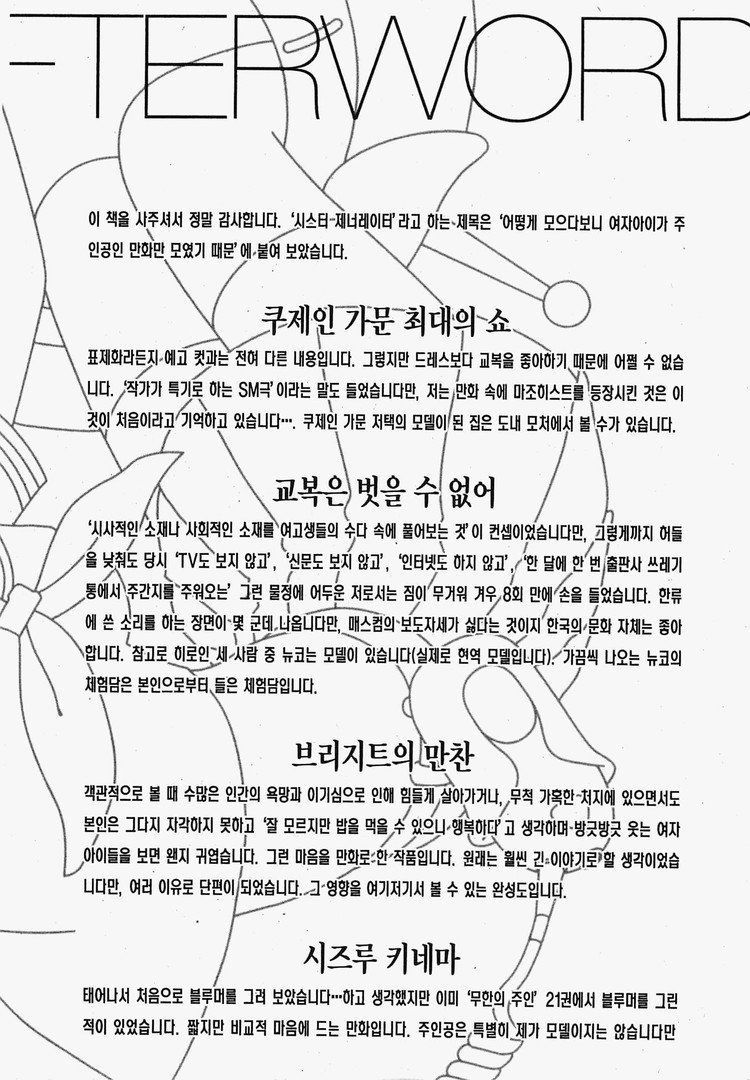 FTERWORD
이 책을 사주셔서 정말 감사합니다. ‘시스터 제너레이터’라고 하는 제목은 ‘어떻게 모으다보니 여자아이가 주
인공인 만화만 모였기 때문’에 붙여 보았습니다.
쿠제인 가문 최대의 쇼
표제화라든지 예고 컷과는 전혀 다른 내용입니다. 그렇지만 드레스보다 교복을 좋아하기 때문에 어쩔 수 없습
니다. ‘작가가 특기로 하는 SM극’이라는 말도 들었습니다만, 저는 만화 속에 마조히스트를 등장시킨 것은 이
것이 처음이라고 기억하고 있습니다…. 쿠제인 가문 저택의 모델이 된 집은 도내 모처에서 볼 수가 있습니다.
교복은 벗을 수 없어
‘시사적인 소재나 사회적인 소재를 여고생들의 수다 속에 풀어보는 것’이 컨셉이었습니다만, 그렇게까지 허들
을 낮춰도 당시 ‘TV도 보지 않고’, ‘신문도 보지 않고’, ‘인터넷도 하지 않고’, ‘한 달에 한 번 출판사 쓰레기
통에서 주간지를 주워오는’ 그런 물정에 어두운 저로서는 짐이 무거워 겨우 8회 만에 손을 들었습니다. 한류
에 쓴 소리를 하는 장면이 몇 군데 나옵니다만, 매스컴의 보도자세가 싫다는 것이지 한국의 문화 자체는 좋아
합니다. 참고로 히로인 세 사람 중 뉴코는 모델이 있습니다(실제로 현역 모델입니다). 가끔씩 나오는 뉴코의
체험담은 본인으로부터 들은 체험담입니다.
브리지트의 만찬
객관적으로 볼 때 수많은 인간의 욕망과 이기심으로 인해 힘들게 살아가거나, 무척 가혹한 처지에 있으면서도
본인은 그다지 자각하지 못하고 ‘잘 모르지만 밥을 먹을 수 있으니 행복하다’고 생각하며 방긋방긋 웃는 여자
아이들을 보면 왠지 귀엽습니다. 그런 마음을 만화로 한 작품입니다. 원래는 훨씬 긴 이야기로 할 생각이었습
니다만, 여러 이유로 단편이 되었습니다. 그 영향을 여기저기서 볼 수 있는 완성도입니다.
시즈루 키네마
태어나서 처음으로 블루머를 그려 보았습니다…하고 생각했지만 이미 ‘무한의 주인’ 21권에서 블루머를 그린
적이 있었습니다. 짧지만 비교적 마음에 드는 만화입니다. 주인공은 특별히 제가 모델이지는 않습니다만